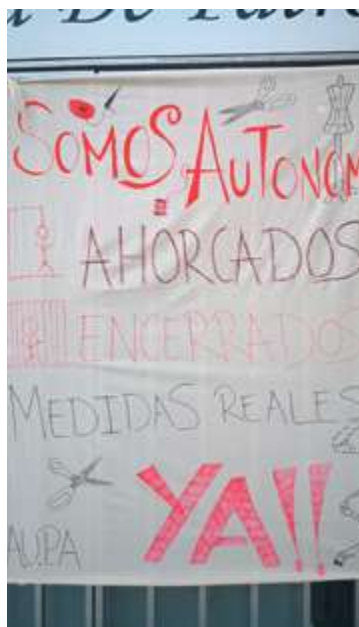 SOMOS AUTONOM
AHORCADOS
ENCERRADOS
MEDIDAS REALES
YA!!
AUPA